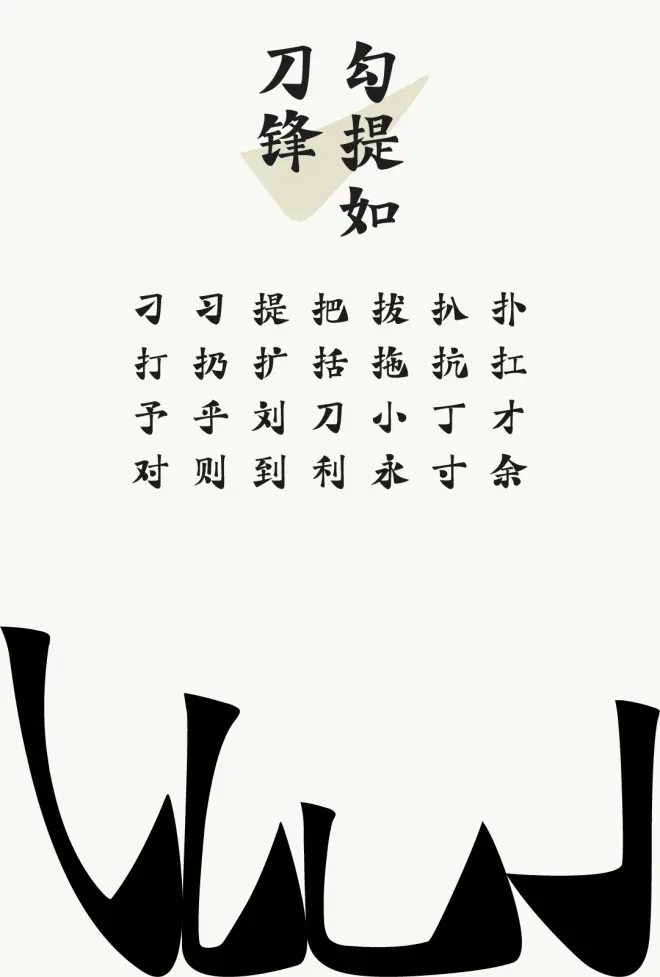 勾提如
刀锋
刁习提把拔扒扑
打扔扩括拖抗扛
予乎刘刀小丁才
对则到利永寸余